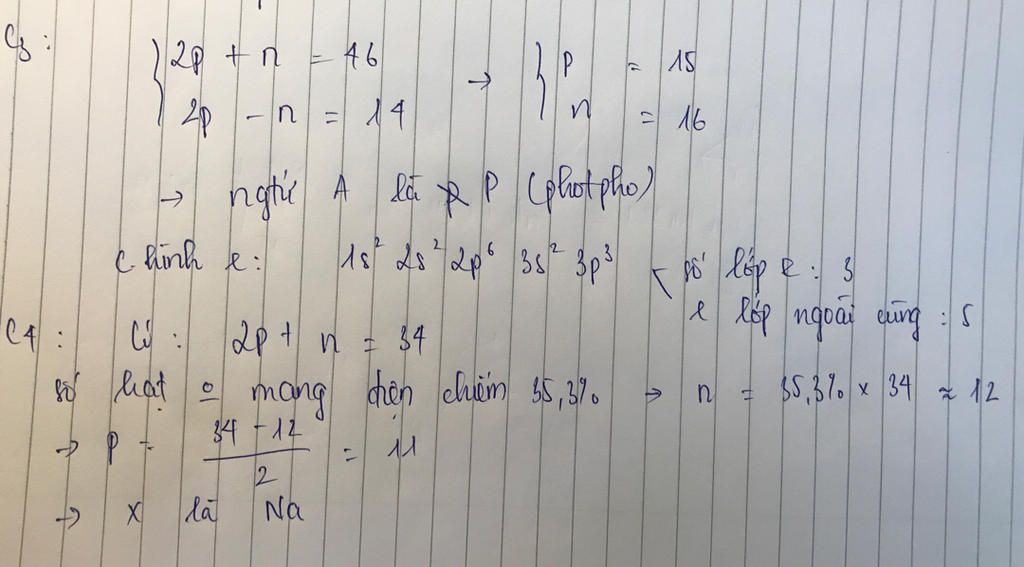 C3 :
2p + n = 46 → p = 15
2p - n = 14 n = 16
→ ngtử A là P (photpho)
C hình e : 1s² 2s² 2p⁶ 3s² 3p³ số lớp e : 3
e lớp ngoài cùng : 5
C4 : Có : 2p + n = 34
số hạt o mang điện chiếm 35,3% → n = 35,3% × 34 ≈ 12
→ p = (34 - 12)/2 = 11
→ X là Na